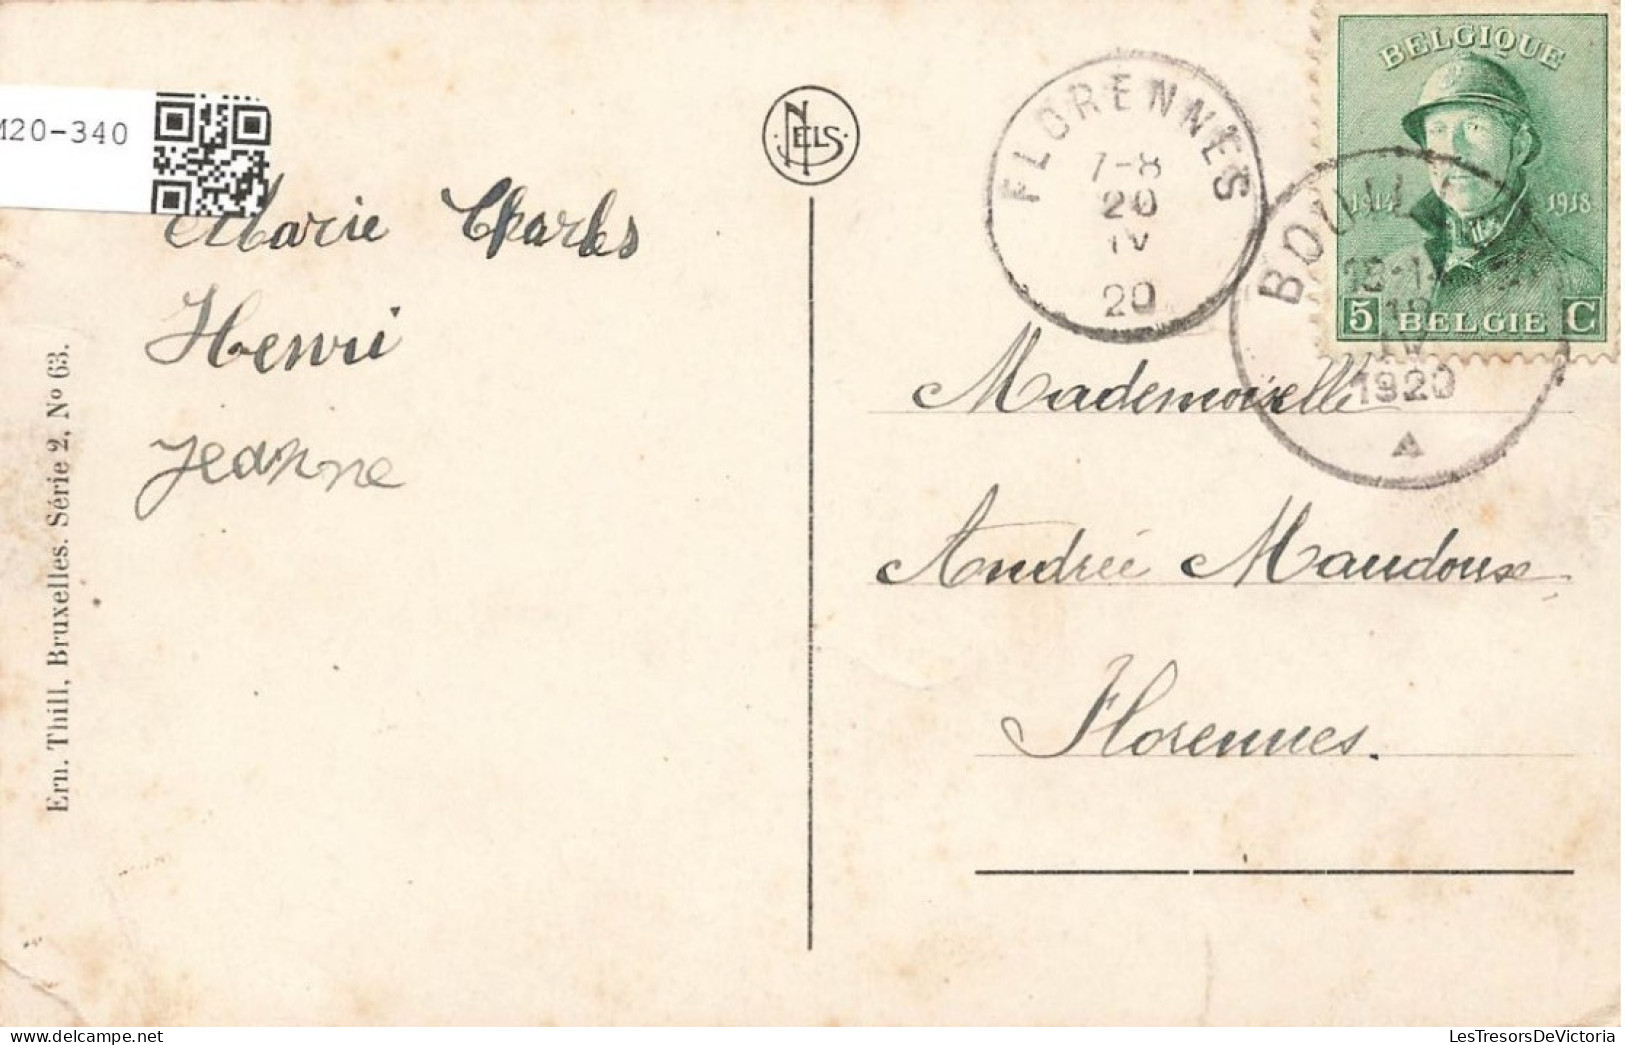 M20-340
NELS
Marie Charles
Henri
Jeanne
Ern. Thill, Bruxelles. Série 2, Nº 63.
FLORENNES
7-8
20
IV
20
BELGIQUE
1914 1918
5 BELGIE C
BOUILL
IV
1920
Mademoiselle
Andrée Maudoux
Florennes.
LesTresorsDeVictoria